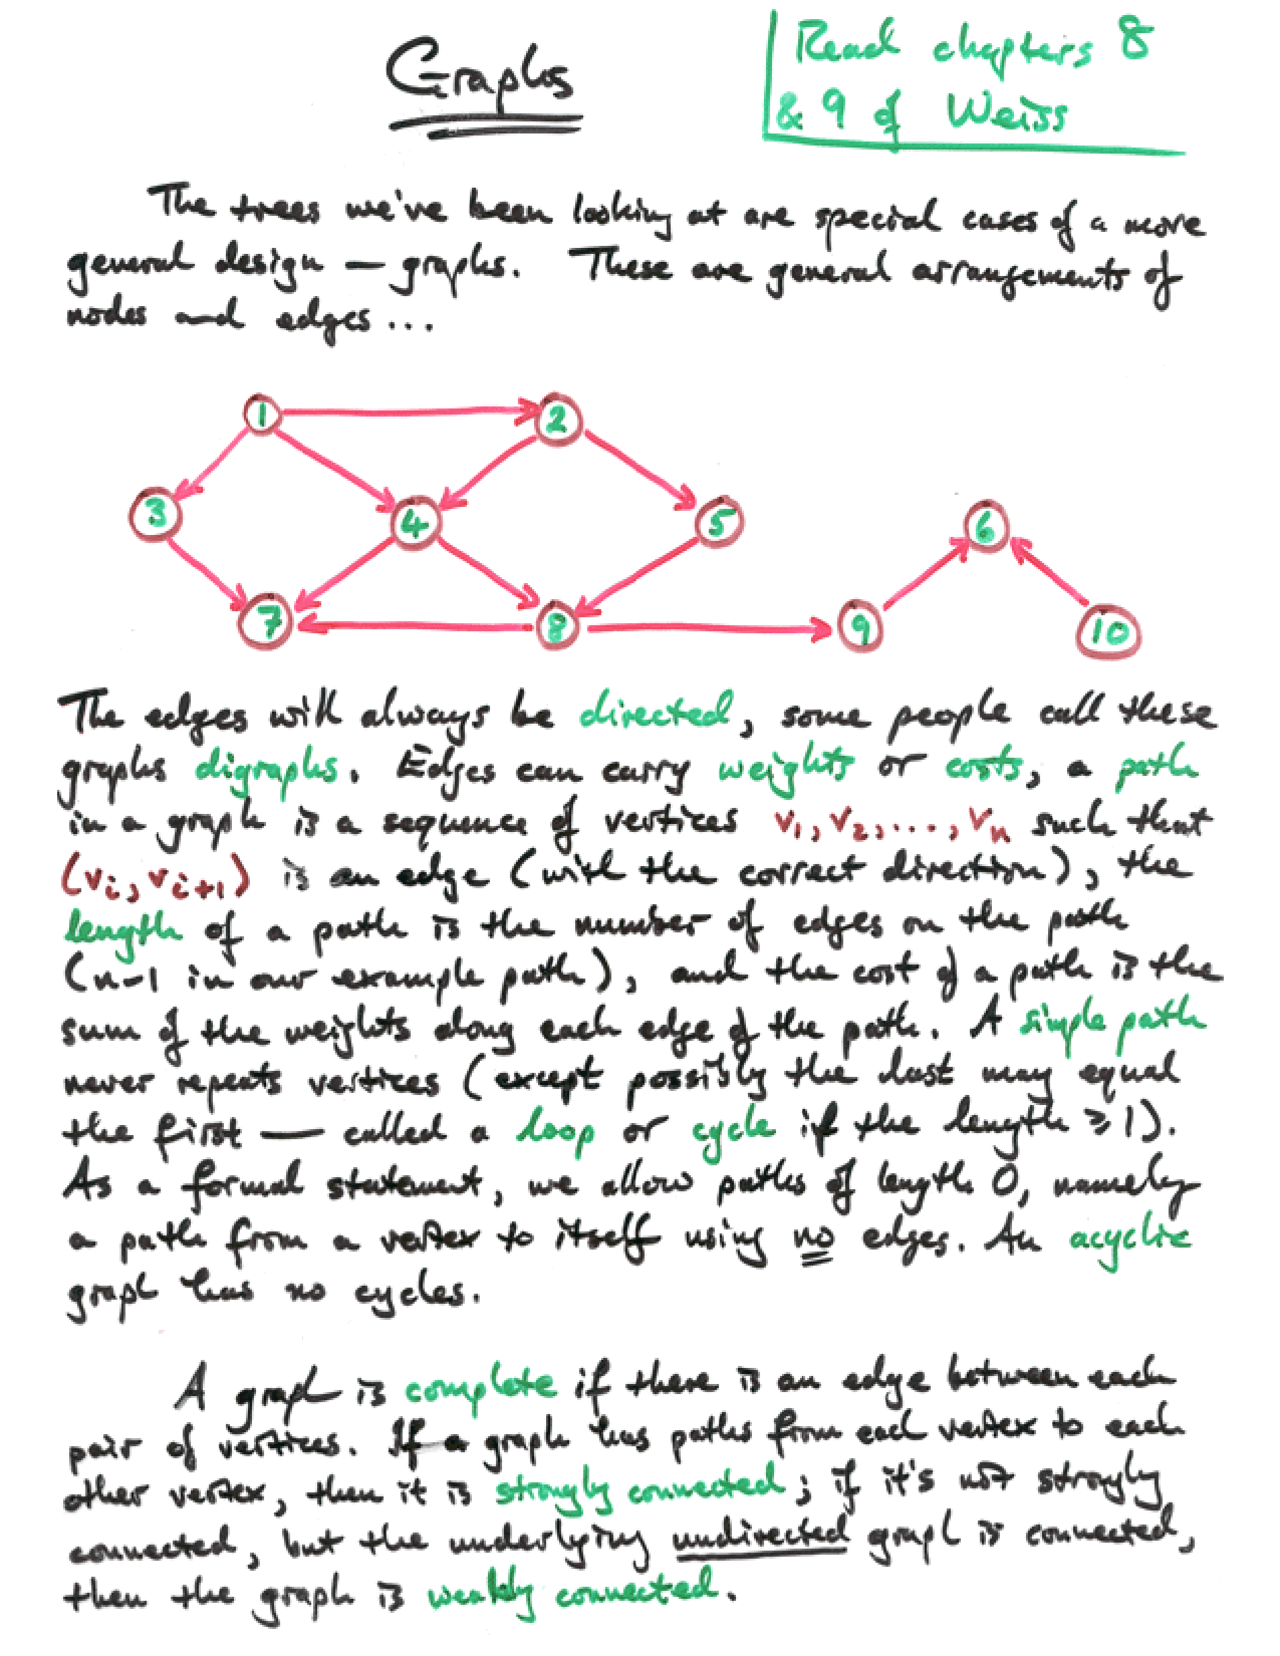 Graphs
Read chapters 8
& 9 of Weiss
The trees we've been looking at are special cases of a more
general design — graphs. These are general arrangements of
nodes and edges...
1
2
3
4
5
6
7
8
9
10
The edges will always be directed, some people call these
graphs digraphs. Edges can carry weights or costs, a path
in a graph is a sequence of vertices v1, v2, ..., vn such that
(vi, vi+1) is an edge (with the correct direction), the
length of a path is the number of edges on the path
(n-1 in our example path), and the cost of a path is the
sum of the weights along each edge of the path. A simple path
never repeats vertices (except possibly the last may equal
the first — called a loop or cycle if the length ≥ 1).
As a formal statement, we allow paths of length 0, namely
a path from a vertex to itself using no edges. An acyclic
graph has no cycles.
A graph is complete if there is an edge between each
pair of vertices. If a graph has paths from each vertex to each
other vertex, then it is strongly connected; if it's not strongly
connected, but the underlying undirected graph is connected,
then the graph is weakly connected.